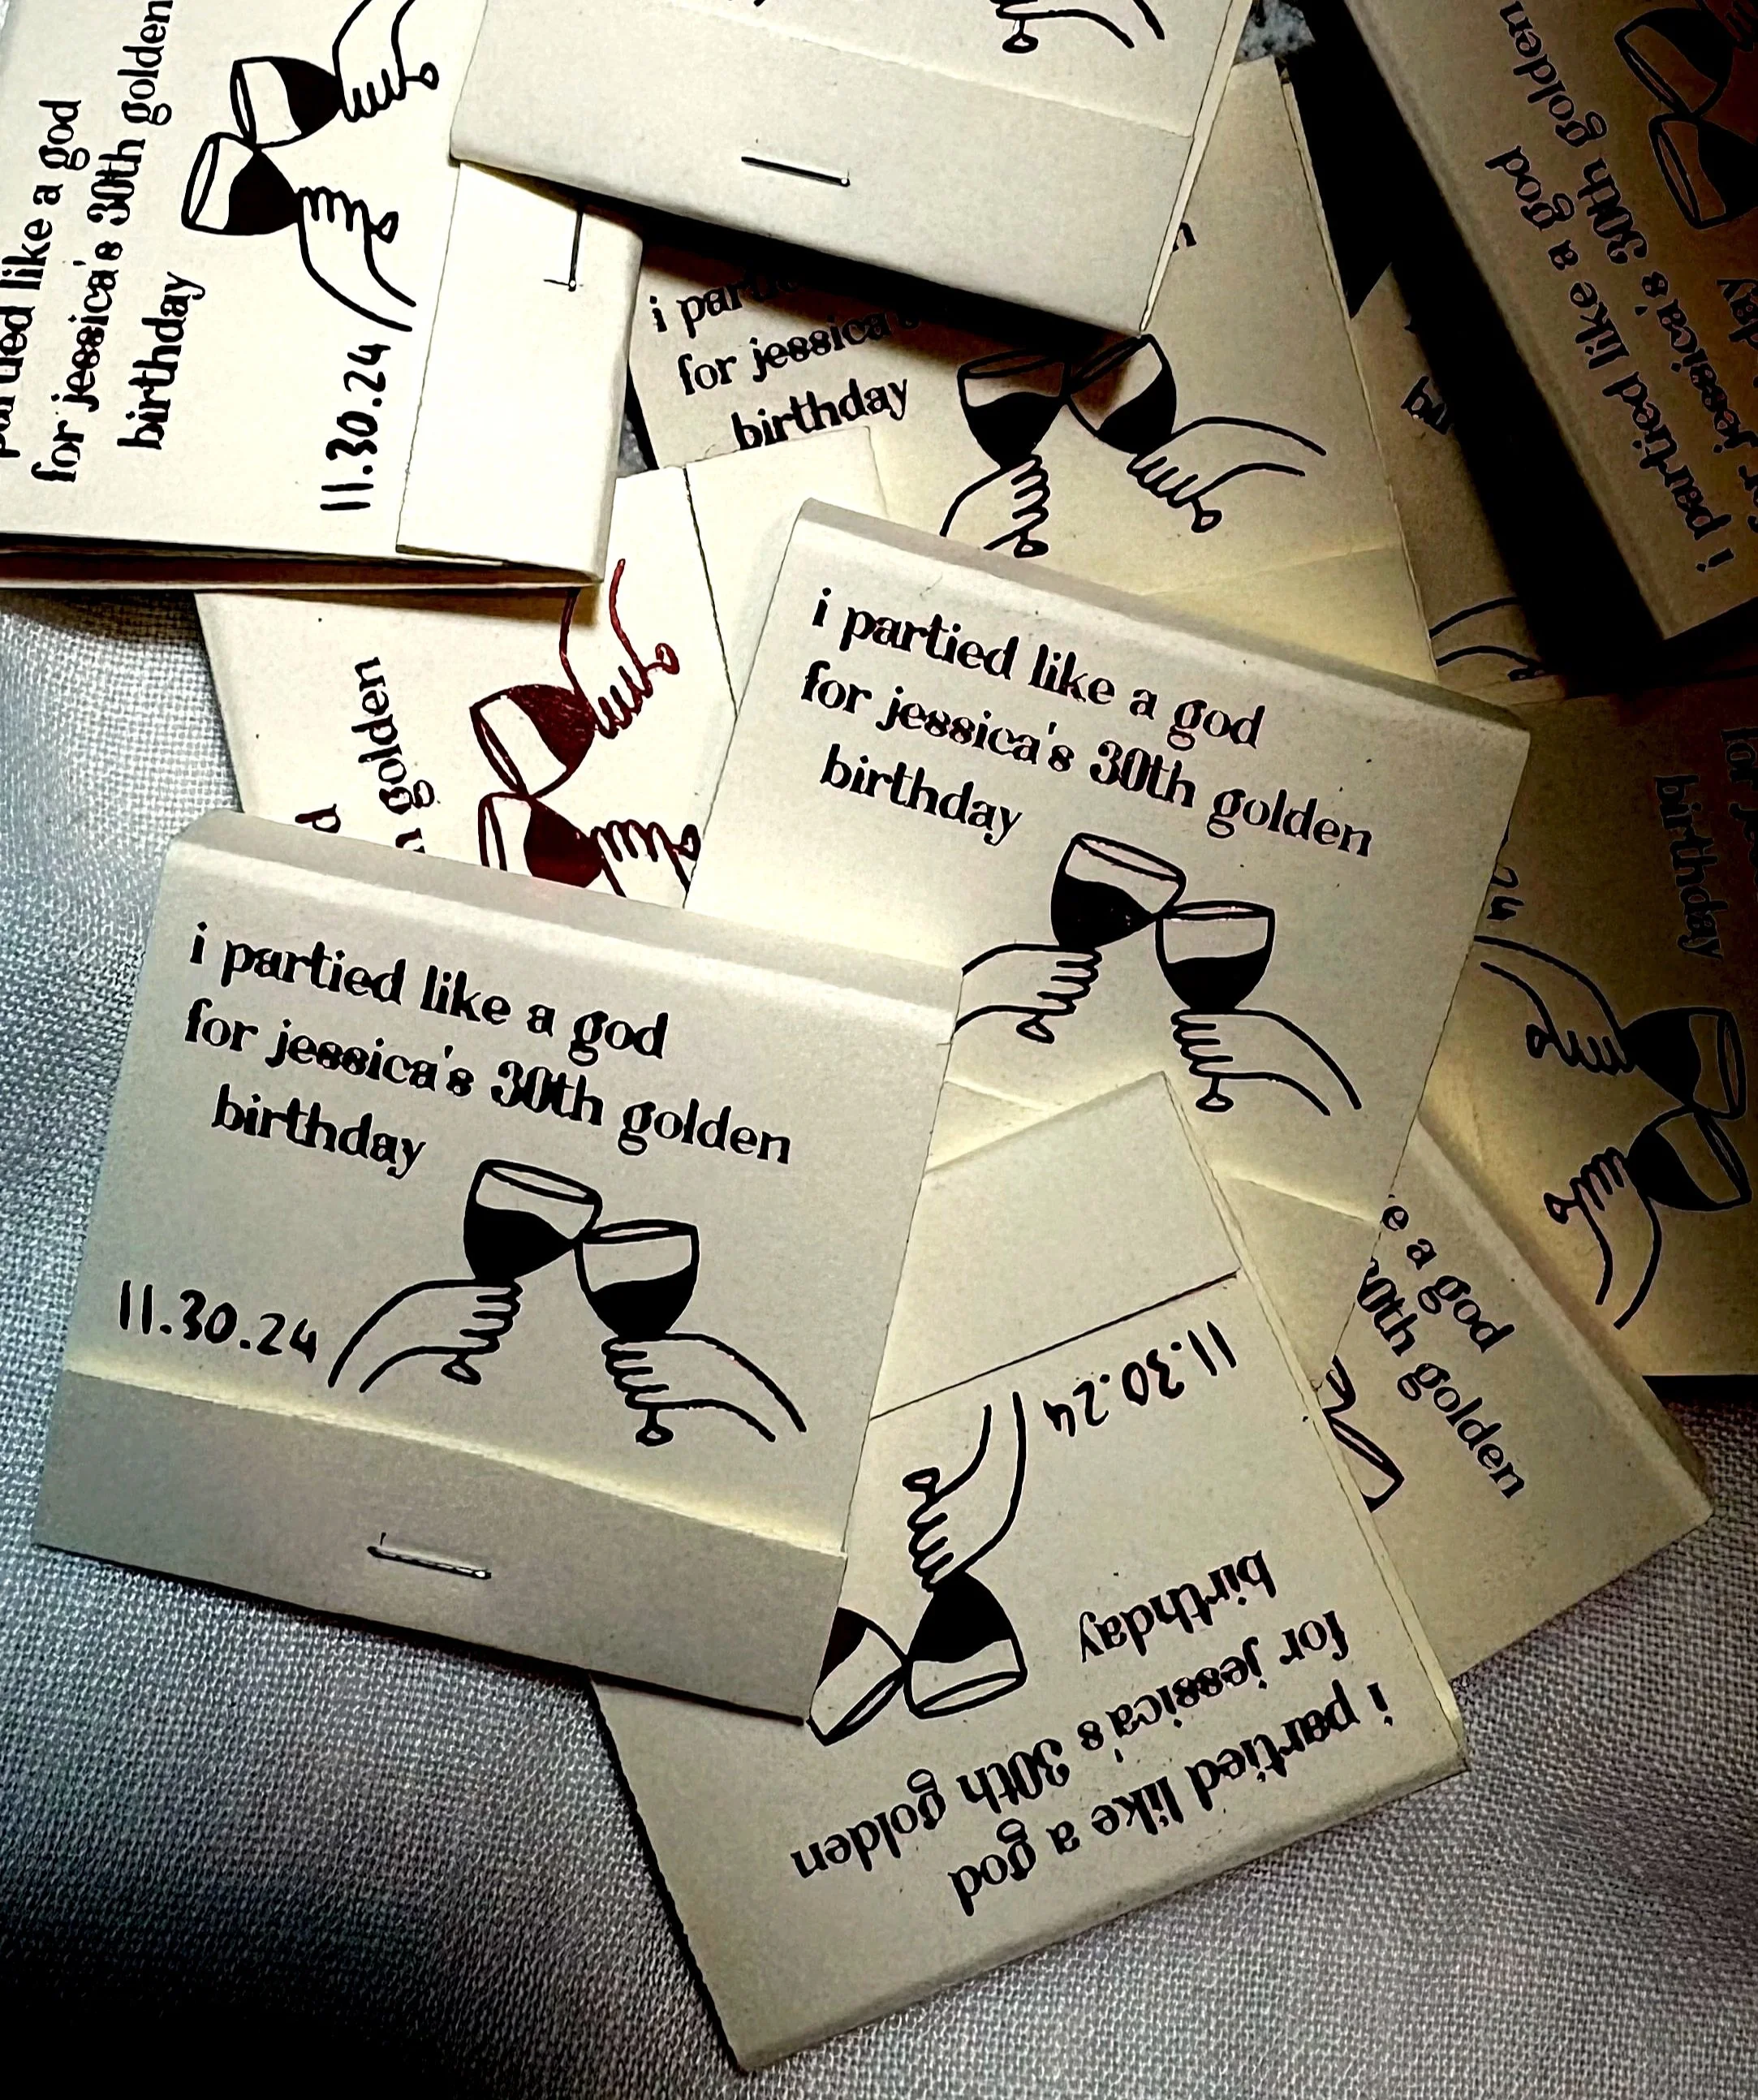 partied like a god
for jessica's 30th golden
birthday
11.30.24
i
for jessica's
birthday
i partied like a god
for jessica's 30th golden
golden
i partied like a god
for jessica's 30th golden
birthday
birthday
24
i partied like a god
for jessica's 30th golden
birthday
11.30.24
a god
golden
i partied like a god
for jessica's 30th golden
birthday
11.30.24